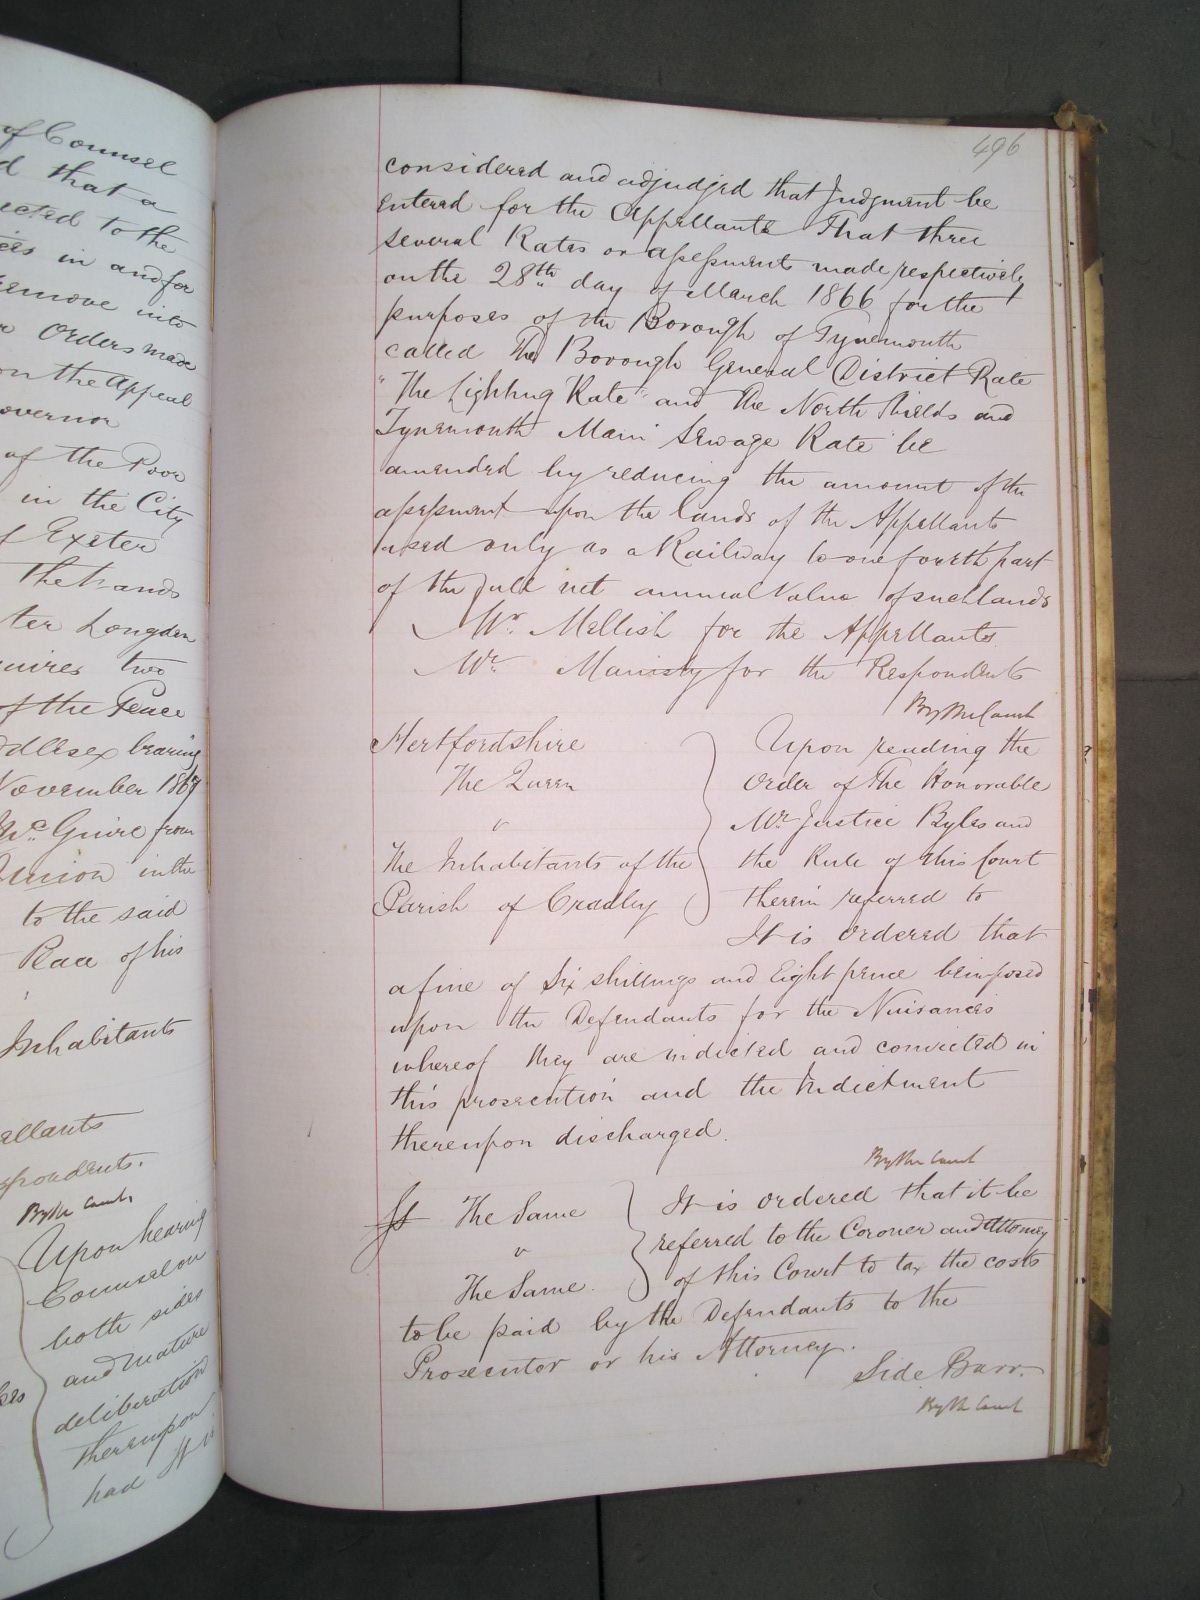 of Counsel
d that a
ected to the
ces in and for
remove into
r Orders made
on the Appeal
overnor
of the Poor
in the City
f Exeter
The hands
ter Longden
uires two
of the Peace
ddlesex bearing
November 1867
McGuire from
Union in the
to the said
Raa of his
Inhabitants
ellants
spondents.
By the Court
Upon hearing
Counsel on
both sides
and mature
deliberation
thereupon
had It is
496
considered and adjudged that Judgment be
entered for the Appellants That three
several Rates or assessments made respectively
on the 28th day of March 1866 for the
purposes of the Borough of Tynemouth
called The Borough General District Rate
"The Lighting Rate" and The North Shields and
Tynemouth Main Sewage Rate be
amended by reducing the amount of the
assessment upon the lands of the Appellants
used only as a Railway to one fourth part
of the full net annual Value of such lands
Mr. Mellish for the Appellants.
Mr. Manisty for the Respondents
By the Court
Hertfordshire
The Queen
v
The Inhabitants of the
Parish of Cradley
Upon reading the
Order of The Honorable
Mr. Justice Byles and
the Rule of this Court
therein referred to
It is ordered that
a fine of Six shillings and Eight pence be imposed
upon the Defendants for the Nuisances
whereof they are indicted and convicted in
this prosecution and the Indictment
thereupon discharged.
By the Court
The Same
v
The Same.
It is ordered that it be
referred to the Coroner and Attorney
of this Court to tax the costs
to be paid by the Defendants to the
Prosecutor or his Attorney.
Side Barr.
By the Court